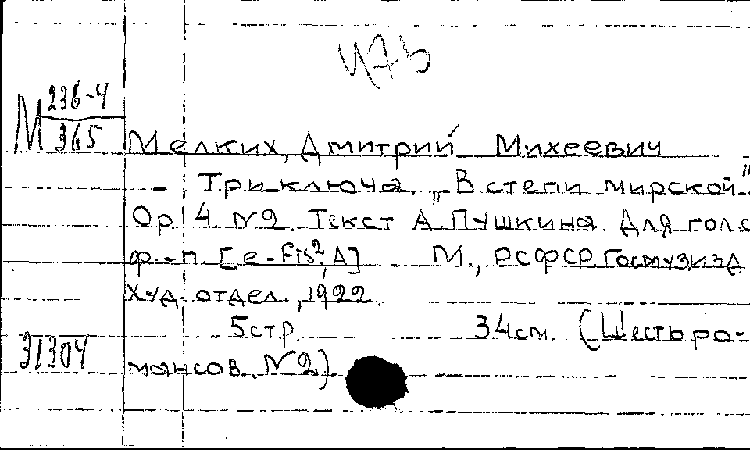 475
М 236-4
365
Мелких, Дмитрий Михеевич
- Три ключа. „В степи мирской".
Ор 4 №2 Текст А. Пушкина. Для голо
ф.-п [e-fis², A] М., РСФСР Госмузизд
Худ. отдел., 1922
5 стр 34 см. (Шесть ро-
31304
мансов, №2)